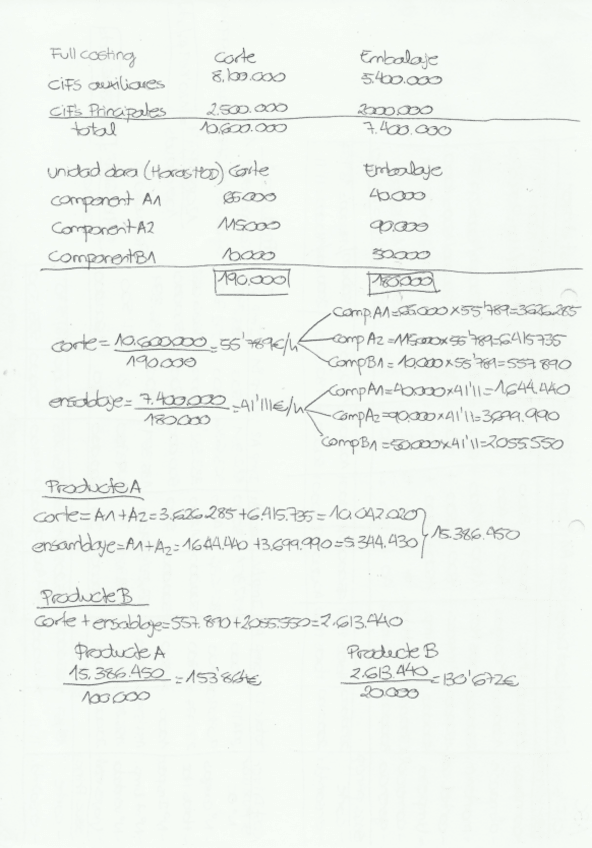 Full costing Corte Embalaje
CIFs auxiliares 8.100.000 5.400.000
CIFs Principales 2.500.000 2000.000
total 10.600.000 7.400.000
unidad obra (Horas HOD) Corte Embalaje
component A1 65.000 40.000
Component A2 115.000 90.000
Component B1 10.000 50.000
190.000 180.000
corte = 10.600.000 / 190.000 = 55'789€/h
Comp A1 = 65.000 x 55'789 = 3.626.285
Comp A2 = 115.000 x 55'789 = 6.415.735
Comp B1 = 10.000 x 55'789 = 557.890
ensablaje = 7.400.000 / 180.000 = 41'111€/h
Comp A1 = 40.000 x 41'11 = 1.644.440
Comp A2 = 90.000 x 41'11 = 3.699.990
Comp B1 = 50.000 x 41'11 = 2.055.550
Producte A
corte = A1 + A2 = 3.626.285 + 6.415.735 = 10.042.020
ensamblaje = A1 + A2 = 1.644.440 + 3.699.990 = 5.344.430
15.386.450
Producte B
corte + ensablaje = 557.890 + 2.055.550 = 2.613.440
Producte A Producte B
15.386.450 / 100.000 = 153'864€ 2.613.440 / 20.000 = 130'672€